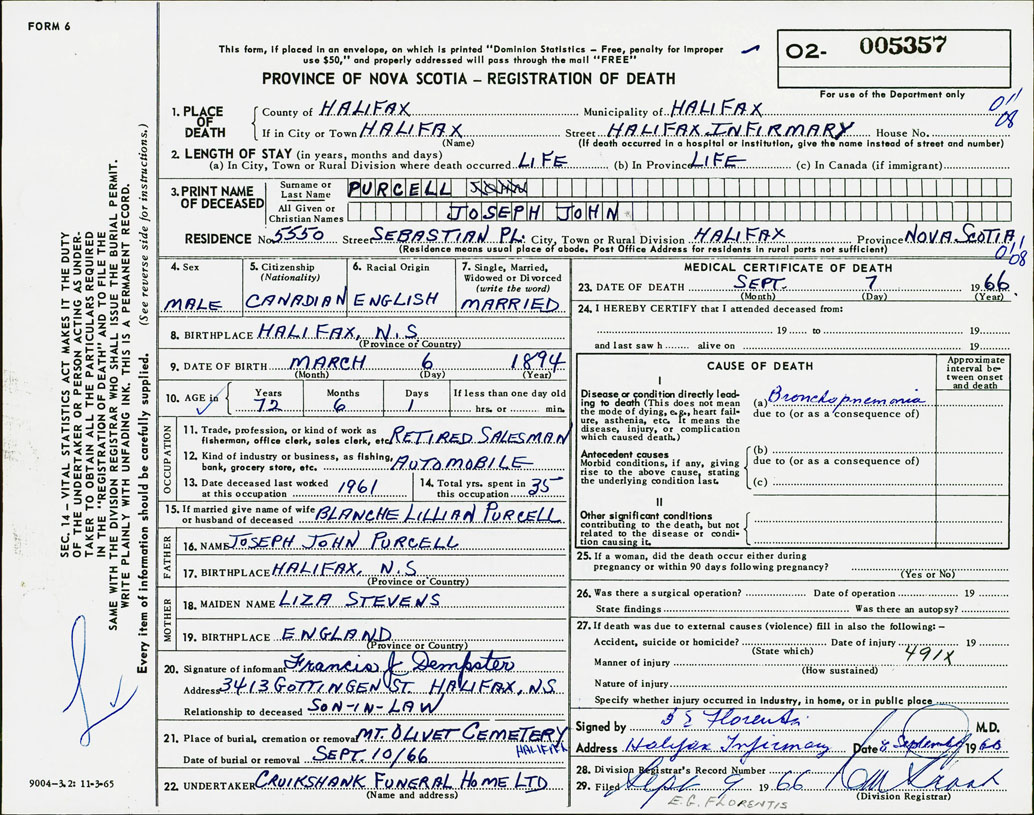 FORM 6
This form, if placed in an envelope, on which is printed "Dominion Statistics – Free, penalty for improper
use $50," and properly addressed will pass through the mail "FREE"
O2- 005357
For use of the Department only
PROVINCE OF NOVA SCOTIA – REGISTRATION OF DEATH
SEC. 14 – VITAL STATISTICS ACT MAKES IT THE DUTY
OF THE UNDERTAKER OR PERSON ACTING AS UNDER-
TAKER TO OBTAIN ALL THE PARTICULARS REQUIRED
IN THE "REGISTRATION OF DEATH" AND TO FILE THE
SAME WITH THE DIVISION REGISTRAR WHO SHALL ISSUE THE BURIAL PERMIT.
WRITE PLAINLY WITH UNFADING INK. THIS IS A PERMANENT RECORD.
Every item of information should be carefully supplied. (See reverse side for instructions.)
1. PLACE OF DEATH
County of HALIFAX Municipality of HALIFAX
08
If in City or Town HALIFAX Street HALIFAX INFIRMARY House No.
(Name) (If death occurred in a hospital or institution, give the name instead of street and number)
2. LENGTH OF STAY (in years, months and days)
(a) In City, Town or Rural Division where death occurred LIFE (b) In Province LIFE (c) In Canada (if immigrant)
3. PRINT NAME OF DECEASED
Surname or Last Name PURCELL JOHN
All Given or Christian Names JOSEPH JOHN
RESIDENCE No. 5550 Street SEBASTIAN PL. City, Town or Rural Division HALIFAX Province NOVA SCOTIA
(Residence means usual place of abode. Post Office Address for residents in rural parts not sufficient)
08
4. Sex MALE
5. Citizenship (Nationality) CANADIAN
6. Racial Origin ENGLISH
7. Single, Married, Widowed or Divorced (write the word) MARRIED
8. BIRTHPLACE HALIFAX, N.S
(Province or Country)
9. DATE OF BIRTH MARCH 6 1894
(Month) (Day) (Year)
10. AGE in Years 72 Months 6 Days 1 If less than one day old hrs. or min.
OCCUPATION
11. Trade, profession, or kind of work as
fisherman, office clerk, sales clerk, etc. RETIRED SALESMAN
12. Kind of industry or business, as fishing,
bank, grocery store, etc. AUTOMOBILE
13. Date deceased last worked at this occupation 1961
14. Total yrs. spent in this occupation 35
15. If married give name of wife or husband of deceased BLANCHE LILLIAN PURCELL
FATHER
16. NAME JOSEPH JOHN PURCELL
17. BIRTHPLACE HALIFAX, N.S
(Province or Country)
MOTHER
18. MAIDEN NAME LIZA STEVENS
19. BIRTHPLACE ENGLAND
(Province or Country)
20. Signature of informant Francis J Dempster
Address 3413 GOTTINGEN ST. HALIFAX, N.S
Relationship to deceased SON-IN-LAW
21. Place of burial, cremation or removal MT. OLIVET CEMETERY
HALIFAX
Date of burial or removal SEPT. 10/66
22. UNDERTAKER CRUIKSHANK FUNERAL HOME LTD
(Name and address)
9004-3.2: 11-3-65
MEDICAL CERTIFICATE OF DEATH
23. DATE OF DEATH SEPT. 7 1966
(Month) (Day) (Year)
24. I HEREBY CERTIFY that I attended deceased from:
19 to 19
and last saw h alive on 19
CAUSE OF DEATH
Approximate interval be-
tween onset and death
I
Disease or condition directly lead-
ing to death (This does not mean
the mode of dying, e.g., heart fail-
ure, asthenia, etc. It means the
disease, injury, or complication
which caused death.)
(a) Bronchopnemonia
due to (or as a consequence of)
Antecedent causes
Morbid conditions, if any, giving
rise to the above cause, stating
the underlying condition last.
(b)
due to (or as a consequence of)
(c)
II
Other significant conditions
contributing to the death, but not
related to the disease or condi-
tion causing it.
25. If a woman, did the death occur either during
pregnancy or within 90 days following pregnancy?
(Yes or No)
26. Was there a surgical operation? Date of operation 19
State findings Was there an autopsy?
27. If death was due to external causes (violence) fill in also the following: –
Accident, suicide or homicide? Date of injury 19
(State which)
491X
Manner of injury
(How sustained)
Nature of injury
Specify whether injury occurred in Industry, in home, or in public place
Signed by E G Florentis M.D.
Address Halifax Infirmary Date 8 September 1966
28. Division Registrar's Record Number
29. Filed Sept 9 1966
(Division Registrar)
E.G. FLORENTIS